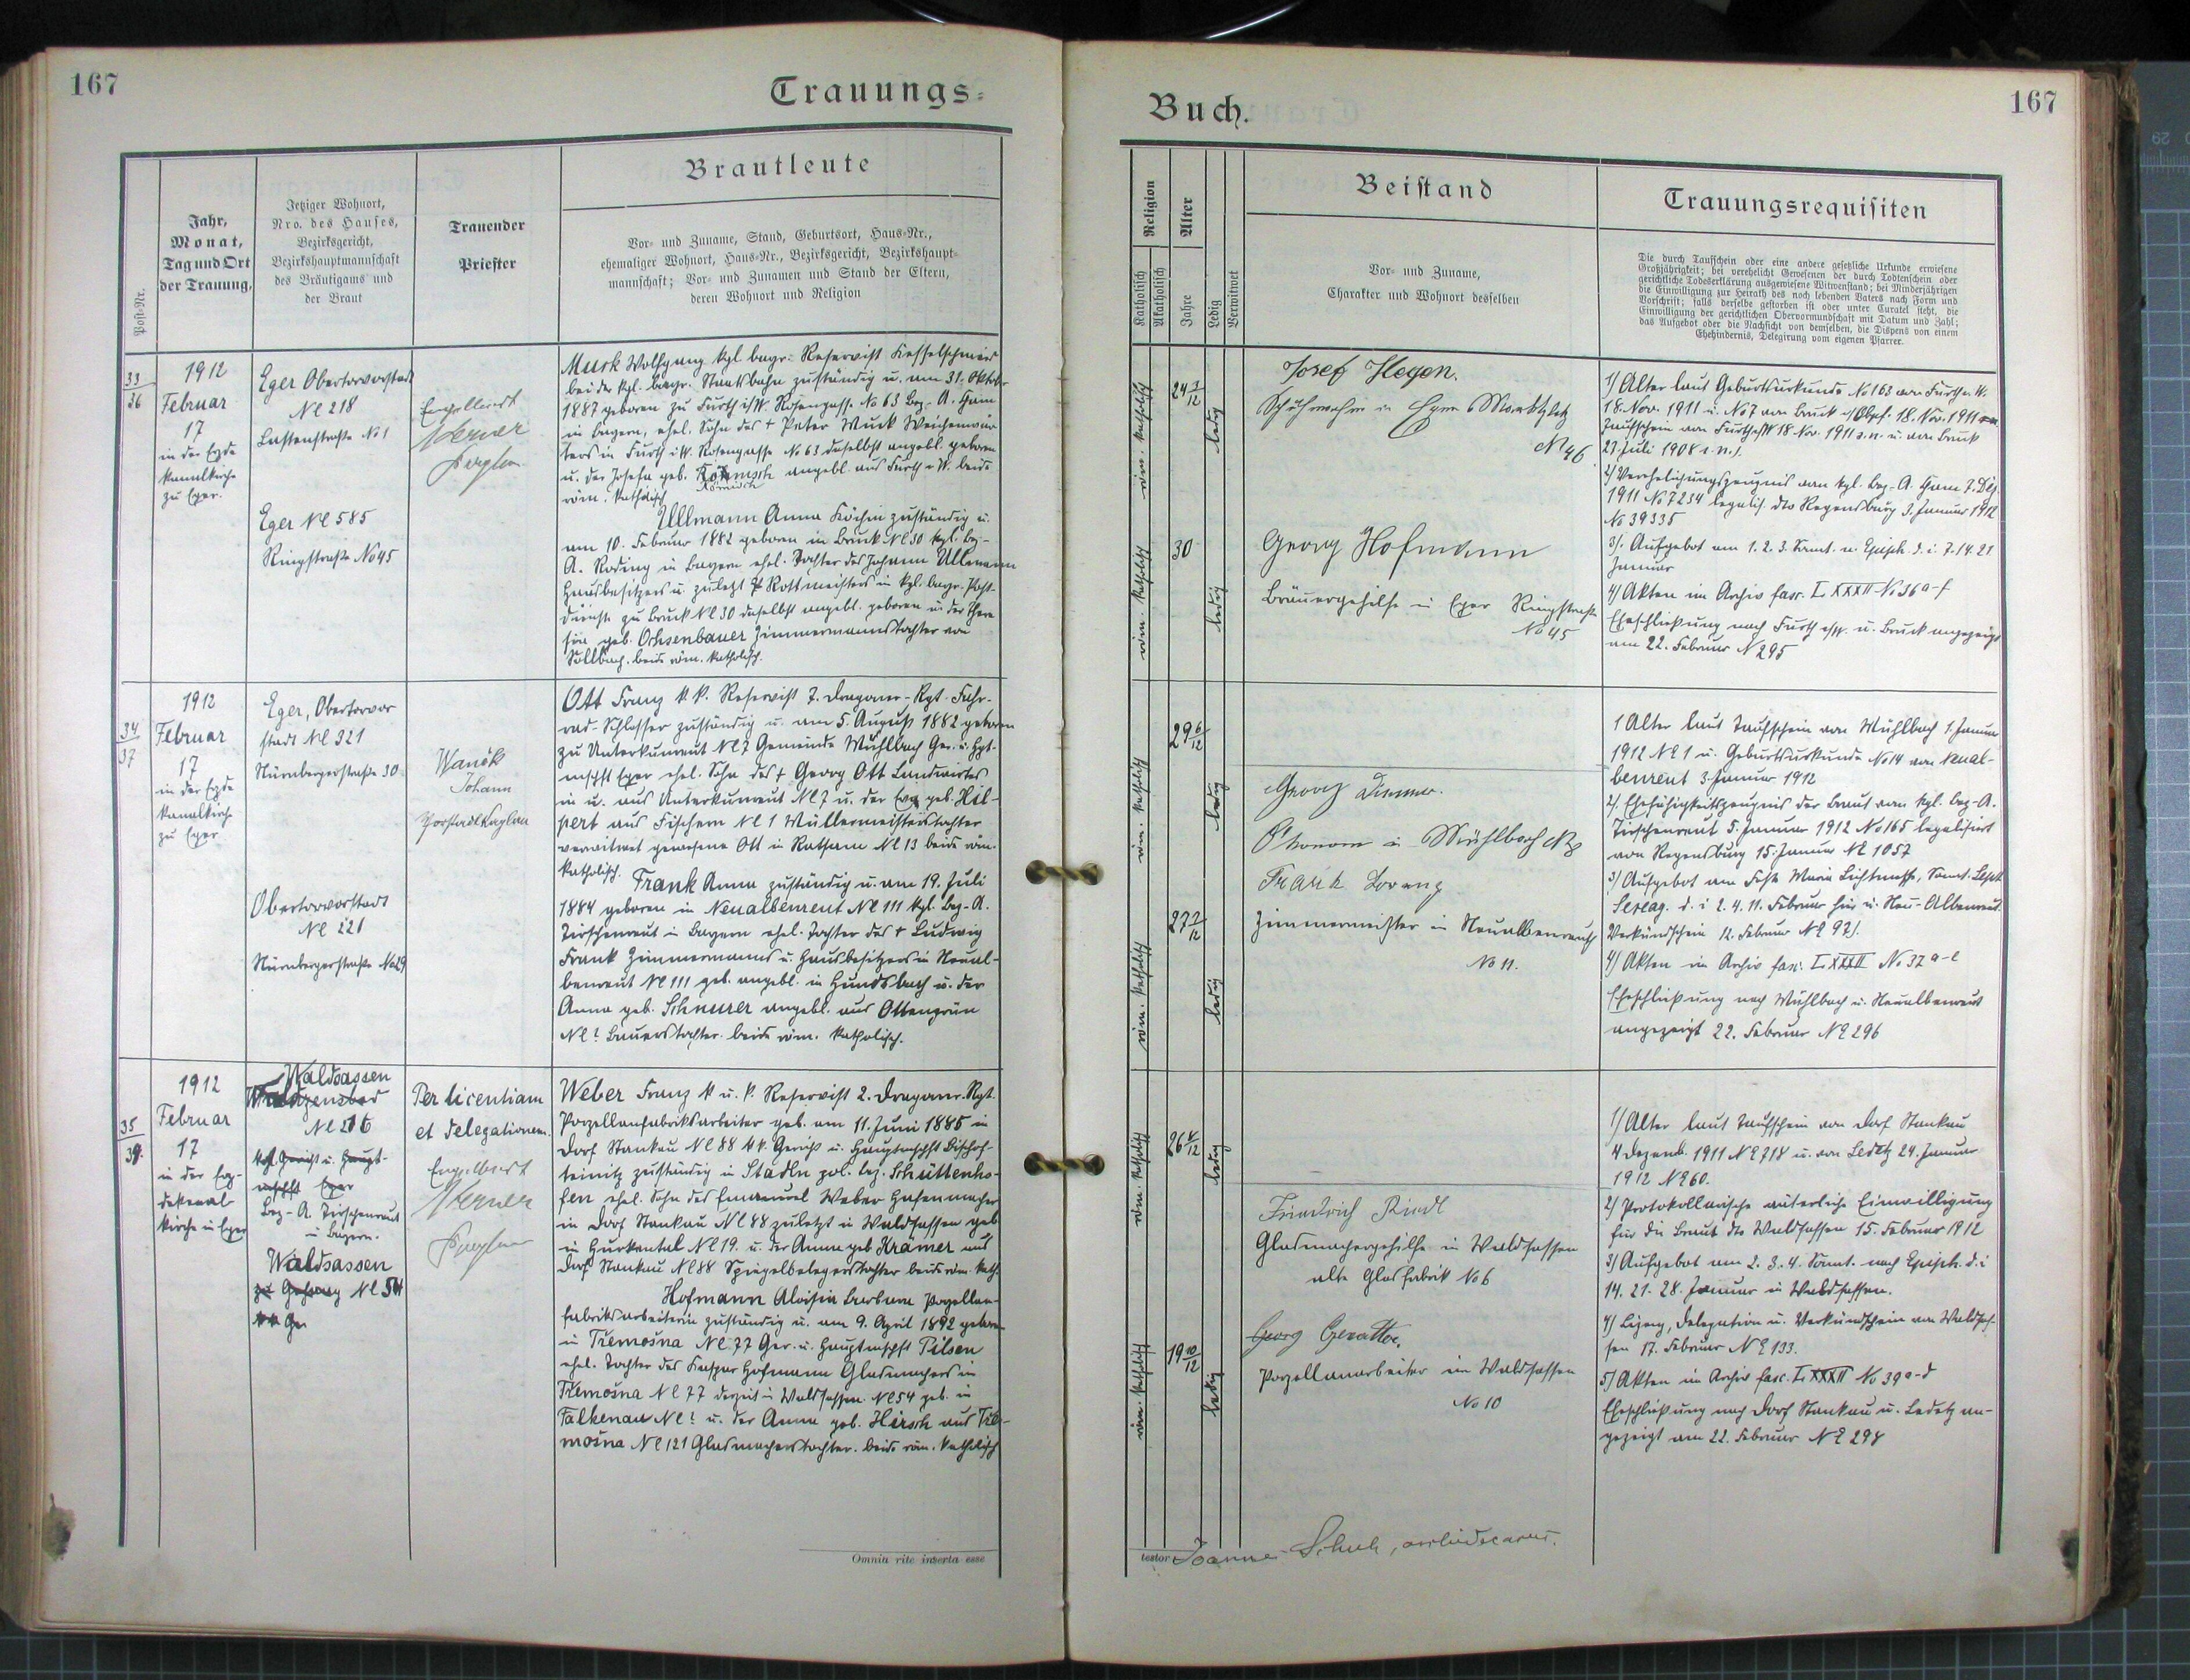 167
Trauungs-
Post-Nr.
Jahr,
Monat,
Tag und Ort
der Trauung,
Jetziger Wohnort,
Nro. des Hauses,
Bezirksgericht,
Bezirkshauptmannschaft
des Bräutigams und
der Braut
Trauender
Priester
Brautleute
Vor- und Zuname, Stand, Geburtsort, Haus-Nr.,
ehemaliger Wohnort, Haus-Nr., Bezirksgericht, Bezirkshaupt-
mannschaft; Vor- und Zunamen und Stand der Eltern,
deren Wohnort und Religion
33
36
1912
Februar
17
in der Erzde
kanalkirche
zu Eger.
Eger Obertorvorstadt
Nc 218
No 1
Eger Nc 585
Ringstraße No 45
Engelbert
Werner
Wolfgang kgl bayr. Reservist Kesselschmied
bei der kgl. bayr. Staatsbahn zuständig u. am 31. Oktober
1887 geboren zu Furth i/W. Rosengasse No 63 Bez. A. Cham
in Bayern, ehel. Sohn des † Peter Weichenwär
ters in Furth i W. Rosengasse No 63 daselbst angebl. geboren
u. der Josefa geb. angebl. aus Furth i W. beide
röm. katholisch
Ullmann Anna Köchin zuständig u.
am 10. Februar 1882 geboren in Bruck Nc 30 kgl. Bez-
A. Roding in Bayern ehel. Tochter des Johann Ullmann
Hausbesitzers u. zuletzt Rottmeisters in kgl. bayr.
dienste zu Bruck Nc 30 daselbst angebl. geboren u. der There
sia geb. Ochsenbauer Zimmermannstochter von
Sollbach. beide röm. katholisch.
34
37
1912
Februar
17
in der Erzde
kanalkirche
zu Eger
Eger, Obertorvor
stadt Nc 321
Nürnbergerstraße 30
Obertorvorstadt
Nc 221
Nürnbergerstraße No 29
Wanék
Johann
Ott Franz k. k. Reservist 7. Dragoner-Rgt. Fahr-
rad-Schlosser zuständig u. am 5. August 1882 geboren
zu Unterkunreut Nc 7 Gemeinde Mühlbach Ger. u. Hpt-
mschft Eger ehel. Sohn des † Georg Ott Landwirtes
in u. aus Unterkunreut Nc 7 u. der Eva geb. Hil-
pert aus Fischern Nc 1 Müllermeisterstochter
verwitwet gewesene Ott in Rathsam Nc 13 beide röm.
katholisch.
Frank Anna zuständig u. am 19. Juli
1884 geboren in Neualbenreut Nc 111 kgl. Bez-A.
Tirschenreut in Bayern ehel. Tochter des † Ludwig
Frank Zimmermanns u. Hausbesitzers in Neual-
benreut Nc 111 geb. angebl. in Hundsbach u. der
Anna geb. Schnurer angebl. aus Ottengrün
Nc ? Bauerstochter. beide röm. katholisch.
35
39.
1912
Februar
17
in der Erz-
dekanal
kirche in Eger
Waldsassen
Bez-A. Tirschenreut
in Bayern.
Waldsassen
Nc 54
Per licentiam
et delegationem
Engelbert
Werner
Weber Franz k u. k. Reservist 2. Dragoner-Rgt.
Porzellanfabriksarbeiter geb. am 11. Juni 1885 in
Dorf Stankau Nc 88 k k. Gericht u. Hauptmschft Bischof-
teinitz zuständig in Stadln pol. bez. Schüttenho-
fen ehel. Sohn des Emanuel Weber Hafenmacher
in Dorf Stankau Nc 88 zuletzt in Waldsassen geb
in Hurkental Nc 19. u. der Anna geb Krämer aus
Dorf Stankau Nc 88 Spiegelbelegerstochter beide röm. kath.
Hofmann Aloisia Barbara Porzellan-
fabriksarbeiterin zuständig u. am 9. April 1892 geboren
in Třemošna Nc 77 Ger. u. Hauptmschft Pilsen
ehel. Tochter des Kaspar Hofmann Glasmachers in
Třemošna Nc 77 derzeit in Waldsassen Nc 54 geb. in
Falkenau Nc ? u. der Anna geb. Hirsch aus Tře-
mošna Nc 121 Glasmacherstochter. beide röm. katholisch
Omnia rite inserta esse
Buch.
167
Religion
Katholisch
Akatholisch
Alter
Jahre
Ledig
Verwitwet
Beistand
Vor- und Zuname,
Charakter und Wohnort desselben
Trauungsrequisiten
Die durch Taufschein oder eine andere gesetzliche Urkunde erwiesene
Großjährigkeit; bei verehelicht Gewesenen der durch Todtenschein oder
gerichtliche Todeserklärung ausgewiesene Witwenstand; bei Minderjährigen
die Einwilligung zur Heirath des noch lebenden Vaters nach Form und
Vorschrift; falls derselbe gestorben ist oder unter Curatel steht, die
Einwilligung der gerichtlichen Obervormundschaft mit Datum und Zahl;
das Aufgebot oder die Nachsicht von demselben, die Dispens von einem
Ehehindernis, Delegirung vom eigenen Pfarrer.
röm. katholisch
24 3/12
ledig
Josef Hegen.
in Eger Marktplatz
No 46
röm. katholisch
30
ledig
Georg Hofmann
Bräuergehilfe in Eger Ringstraße
No 45
1/ Alter laut Geburtsurkunde No 163 von Furth i. W.
18. Nov. 1911 u. No 7 von Bruck i/Obpf. 18. Nov. 1911
Taufschein von Furth i/W 18 Nov. 1911 s. n. u. von Bruck
27. Juli 1908 s. n.
2/ Verehelichungszeugnis vom kgl. Bez-A. Cham 7. Dez.
1911 No 7234 legalis. dto Regensburg 3. Jänner 1912
No 39335
3/. Aufgebot am 1. 2. 3. Sonnt. n. Epiph. d. i. 7. 14. 21
Januar
4/ Akten im Archiv fasc. L XXXII No 36 a-f
Eheschließung nach Furth i/W. u. Bruck angezeigt
am 22. Februar No 295
röm. katholisch
29 6/12
ledig
Georg
Ökonom in Mühlbach
röm. katholisch
27 7/12
ledig
Frank Lorenz
Zimmermeister in Neualbenreuth
No 11.
1 Alter laut Taufschein von Mühlbach 1. Januar
1912 No 1 u. Geburtsurkunde No 14 von Neual-
benreut 3. Januar 1912
2/. Ehefähigkeitszeugnis der Braut vom kgl. bez-A.
Tirschenreut 5. Januar 1912 No 165 legalisiert
von Regensburg 15. Januar No 1057
3/ Aufgebot am Feste Maria Lichtmesse, Sonnt.
Sexag. d. i 2. 4. 11. Februar hier u. Neu-Albenreut
Verkündschein 12. Februar No 92/.
4/ Akten im Archiv fasc. L XXXII No 37 a-e
Eheschließung nach Mühlbach u. Neualbenreut
angezeigt 22. Februar No 296
röm. katholisch
26 8/12
ledig
Friedrich Riedl
Glasmachergehilfe in Waldsassen
alte Glasfabrik No 6
röm. katholisch
19 10/12
ledig
Georg
Porzellanarbeiter in Waldsassen
No 10
1/ Alter laut Taufschein von Dorf Stankau
4 Dezemb. 1911 No 718 u. von Ledetz 24. Januar
1912 No 60.
2/ Protokollarische väterliche Einwilligung
für die Braut dto Waldsassen 15. Februar 1912
3/ Aufgebot am 2. 3. 4. Sonnt. nach Epiph. d. i
14. 21. 28. Januar in Waldsassen.
4/ Lizenz, Delegation u. Verkündschein von Waldsas-
sen 17. Februar No 133.
5/ Akten im Archiv fasc. L XXXII No 39 a-d
Eheschließung nach Dorf Stankau u. Ledetz an-
gezeigt am 22. Februar No 298
testor Joannes Schuh, archidecanus.